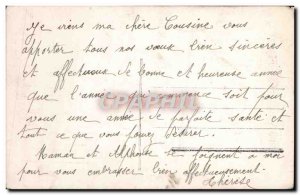 Je viens ma chère Cousine vous
apporter tous nos vœux bien sincères
et affectueux de bonne et heureuse année
que l'année qui commence soit pour
vous une année de parfaite santé et
tout ce que vous pouvez désirer.
Maman et Alphonse se joignent à moi
pour vous embrasser bien affectueusement
Thérèse